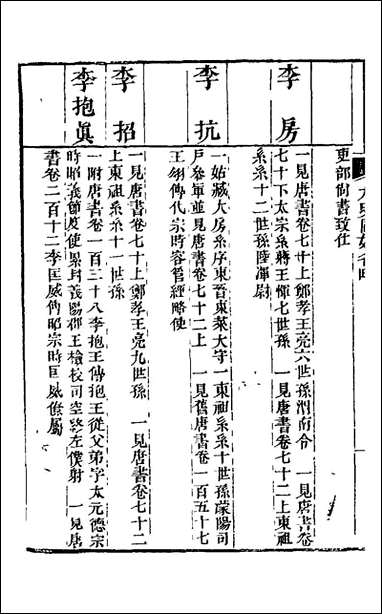 吏部尙書致仕
李房
一見唐書卷七十上鄭孝王亮六世孫渭南令　一見唐書卷
七十下太宗系蔣王惲七世孫　一見唐書卷七十二上東祖
系系十二世孫陸渾尉
李抗
一姑臧大房系序東晉東萊大守　一東祖系系十世孫蒙陽司
戶參軍並見唐書卷七十二上　一見舊唐書卷一百五十七
王翃傳代宗時容管經略使
李招
一見唐書卷七十上鄭孝王亮九世孫　一見唐書卷七十二
上東祖系系十一世孫
李抱眞
一附唐書卷一百三十八李抱玉傳抱玉從父弟字太元德宗
時昭義節度使累封義陽郡王檢校司空終左僕射　一見唐
書卷二百十二李匡威傳昭宗時匡威僚屬